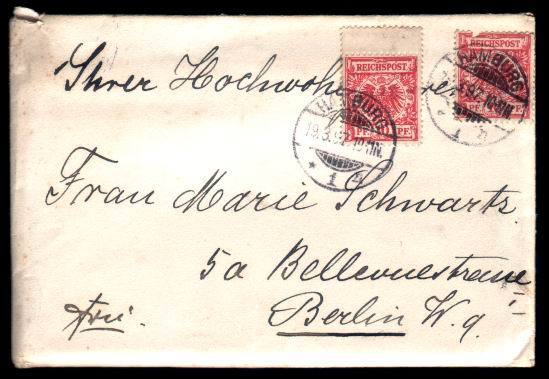 Ihrer Hochwohlgeboren
REICHSPOST
REICHSPOST
PF. PF.
PF.
HAMBURG
19.3.97.
* 1
HAMBURG
97.
1
Frau Marie Schwartz.
5a Bellevuestrasse
frei.
Berlin W. 9.